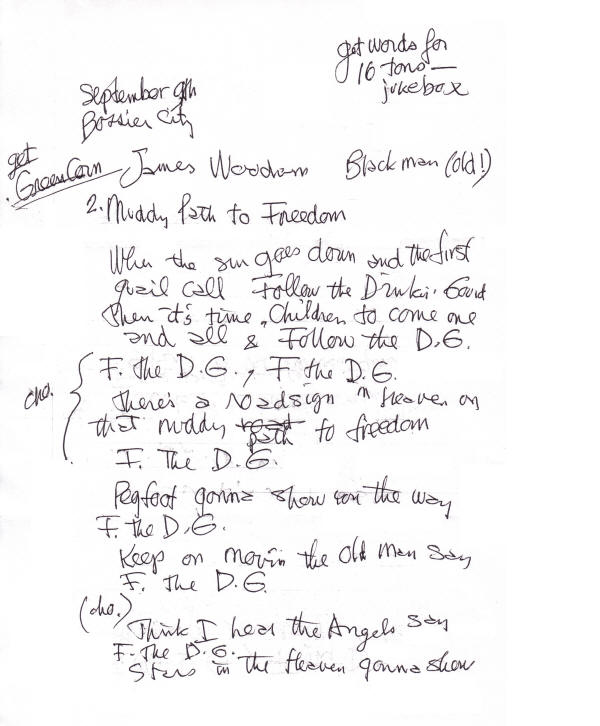 get words for
16 tons —
jukebox
September 9th
Bossier City
get
Green Corn
James Woodam Black man (old!)
2. Muddy Path to Freedom
When the sun goes down and the first
quail call Follow the Drinkin' Gourd
Then it's time, Children to come one
and all & Follow the D.G.
cho.
F. the D.G., F the D.G.
there's a roadsign in Heaven on
that muddy road path to freedom
F. The D.G.
Pegfoot gonna show the way
F. the D.G.
Keep on movin the old man say
F. The D.G.
(cho.)
Think I hear the Angels say
F. The D.G.
Stars in the Heaven gonna show